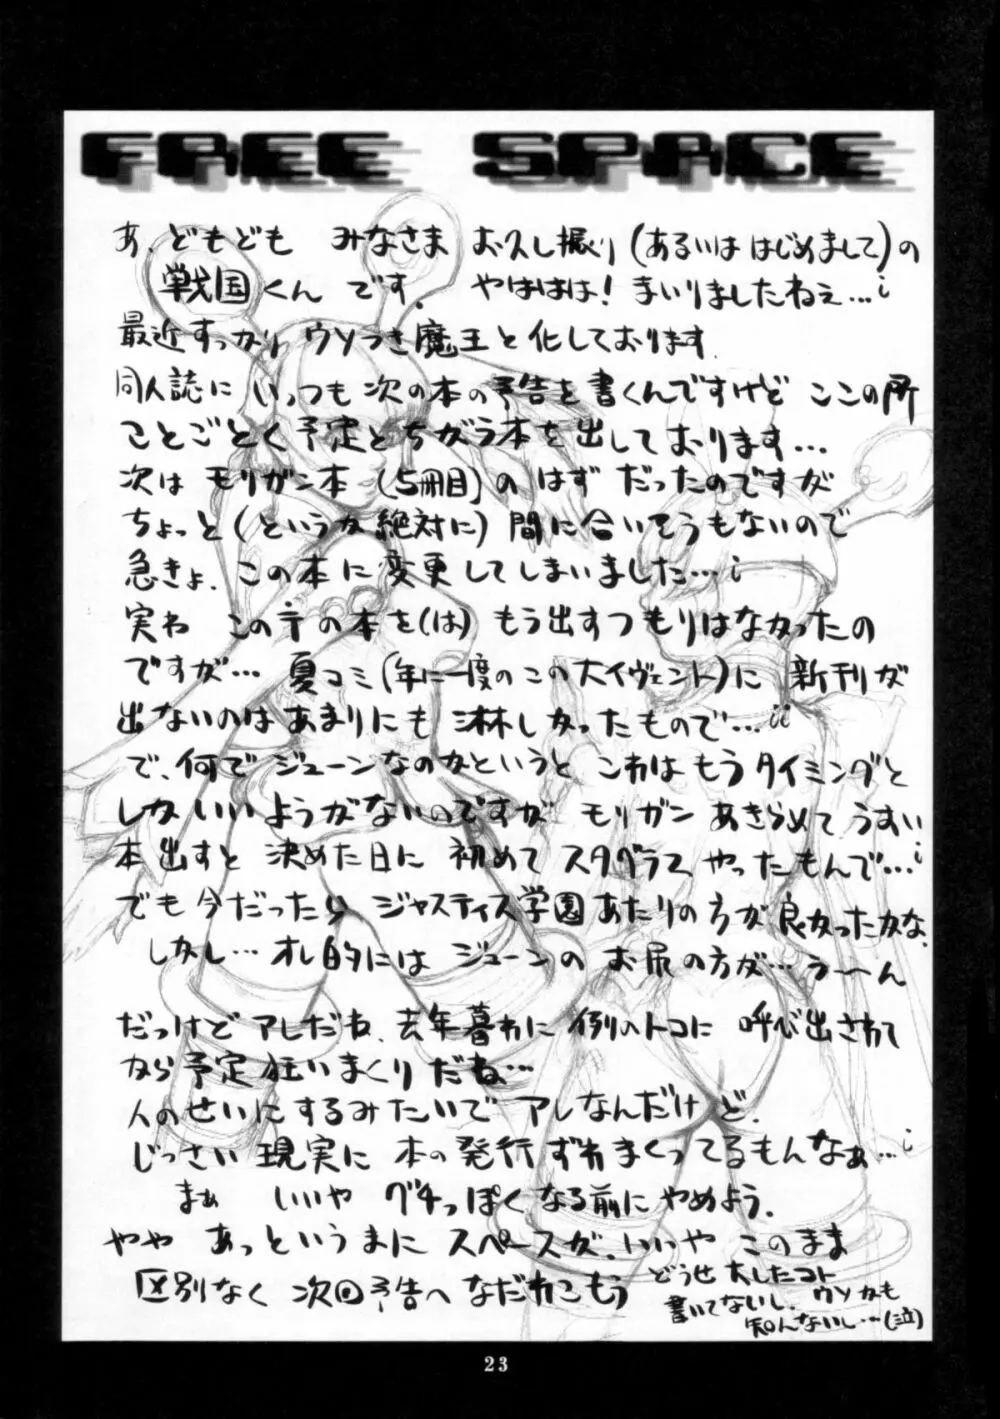 FREE SPACE
あ、どもども みなさま お久し振り(あるいは はじめまして)の
戦国くん です. やははは! まいりましたねぇ…
最近すっかり ウソつき魔王と化しております.
同人誌に いっつも 次の本の予告を書くんですけど ここの所
ことごとく予定とちがう本を出しております…
次は モリガン本 (5冊目)の はず だったのですが
ちょっと(というか絶対に) 間に合いそうもないので
急きょ、この本に変更してしまいました…
実わ この手の本を(は) もう出すつもりはなかったの
ですが… 夏コミ(年に一度のこの大イヴェント)に 新刊が
出ないのは あまりにも 淋しかったもので…
で、何で ジューンなのかというと これは もうタイミングと
しか いいようがないのですが モリガン あきらめて うすい
本出すと 決めた日に 初めて スタグラ2 やったもんで…
でも今だったら ジャスティス学園あたりの方が良かったかな、
しかし… オレ的には ジューンの お尻の方が… う〜〜ん
だっけど アレだね、去年暮れに 例のトコに 呼び出されて
から 予定 狂いまくりだね…
人のせいにするみたいで アレなんだけど、
じっさい 現実に 本の発行 ずれまくってるもんなぁ…
まぁ いいや グチっぽくなる前に やめよう.
やや あっというまに スペースが、いいや このまま
区別なく 次回予告へ なだれこもう
どうせ 大したコト
書いてないし、ウソかも
知んないし…(泣)
23